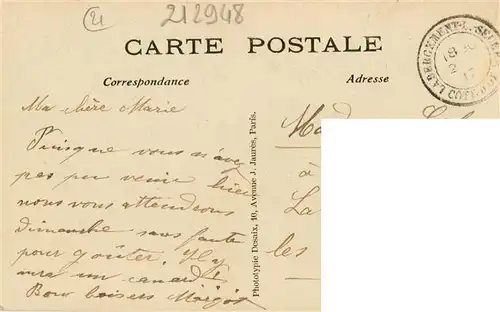 212948
CARTE POSTALE
Correspondance
Adresse
LABERGEMENT-L.-SEURRE
18
2
17
COTE-D'OR
Ma chère Marie
Puisque vous n'avez
pas pu venir hier
nous vous attendrons
dimanche sans faute
pour goûter. Il y
aura un canard!
Bons baisers Margot
Phototypie Desaix, 10, Avenue J. Jaurès, Paris.
Mad
à
La
les